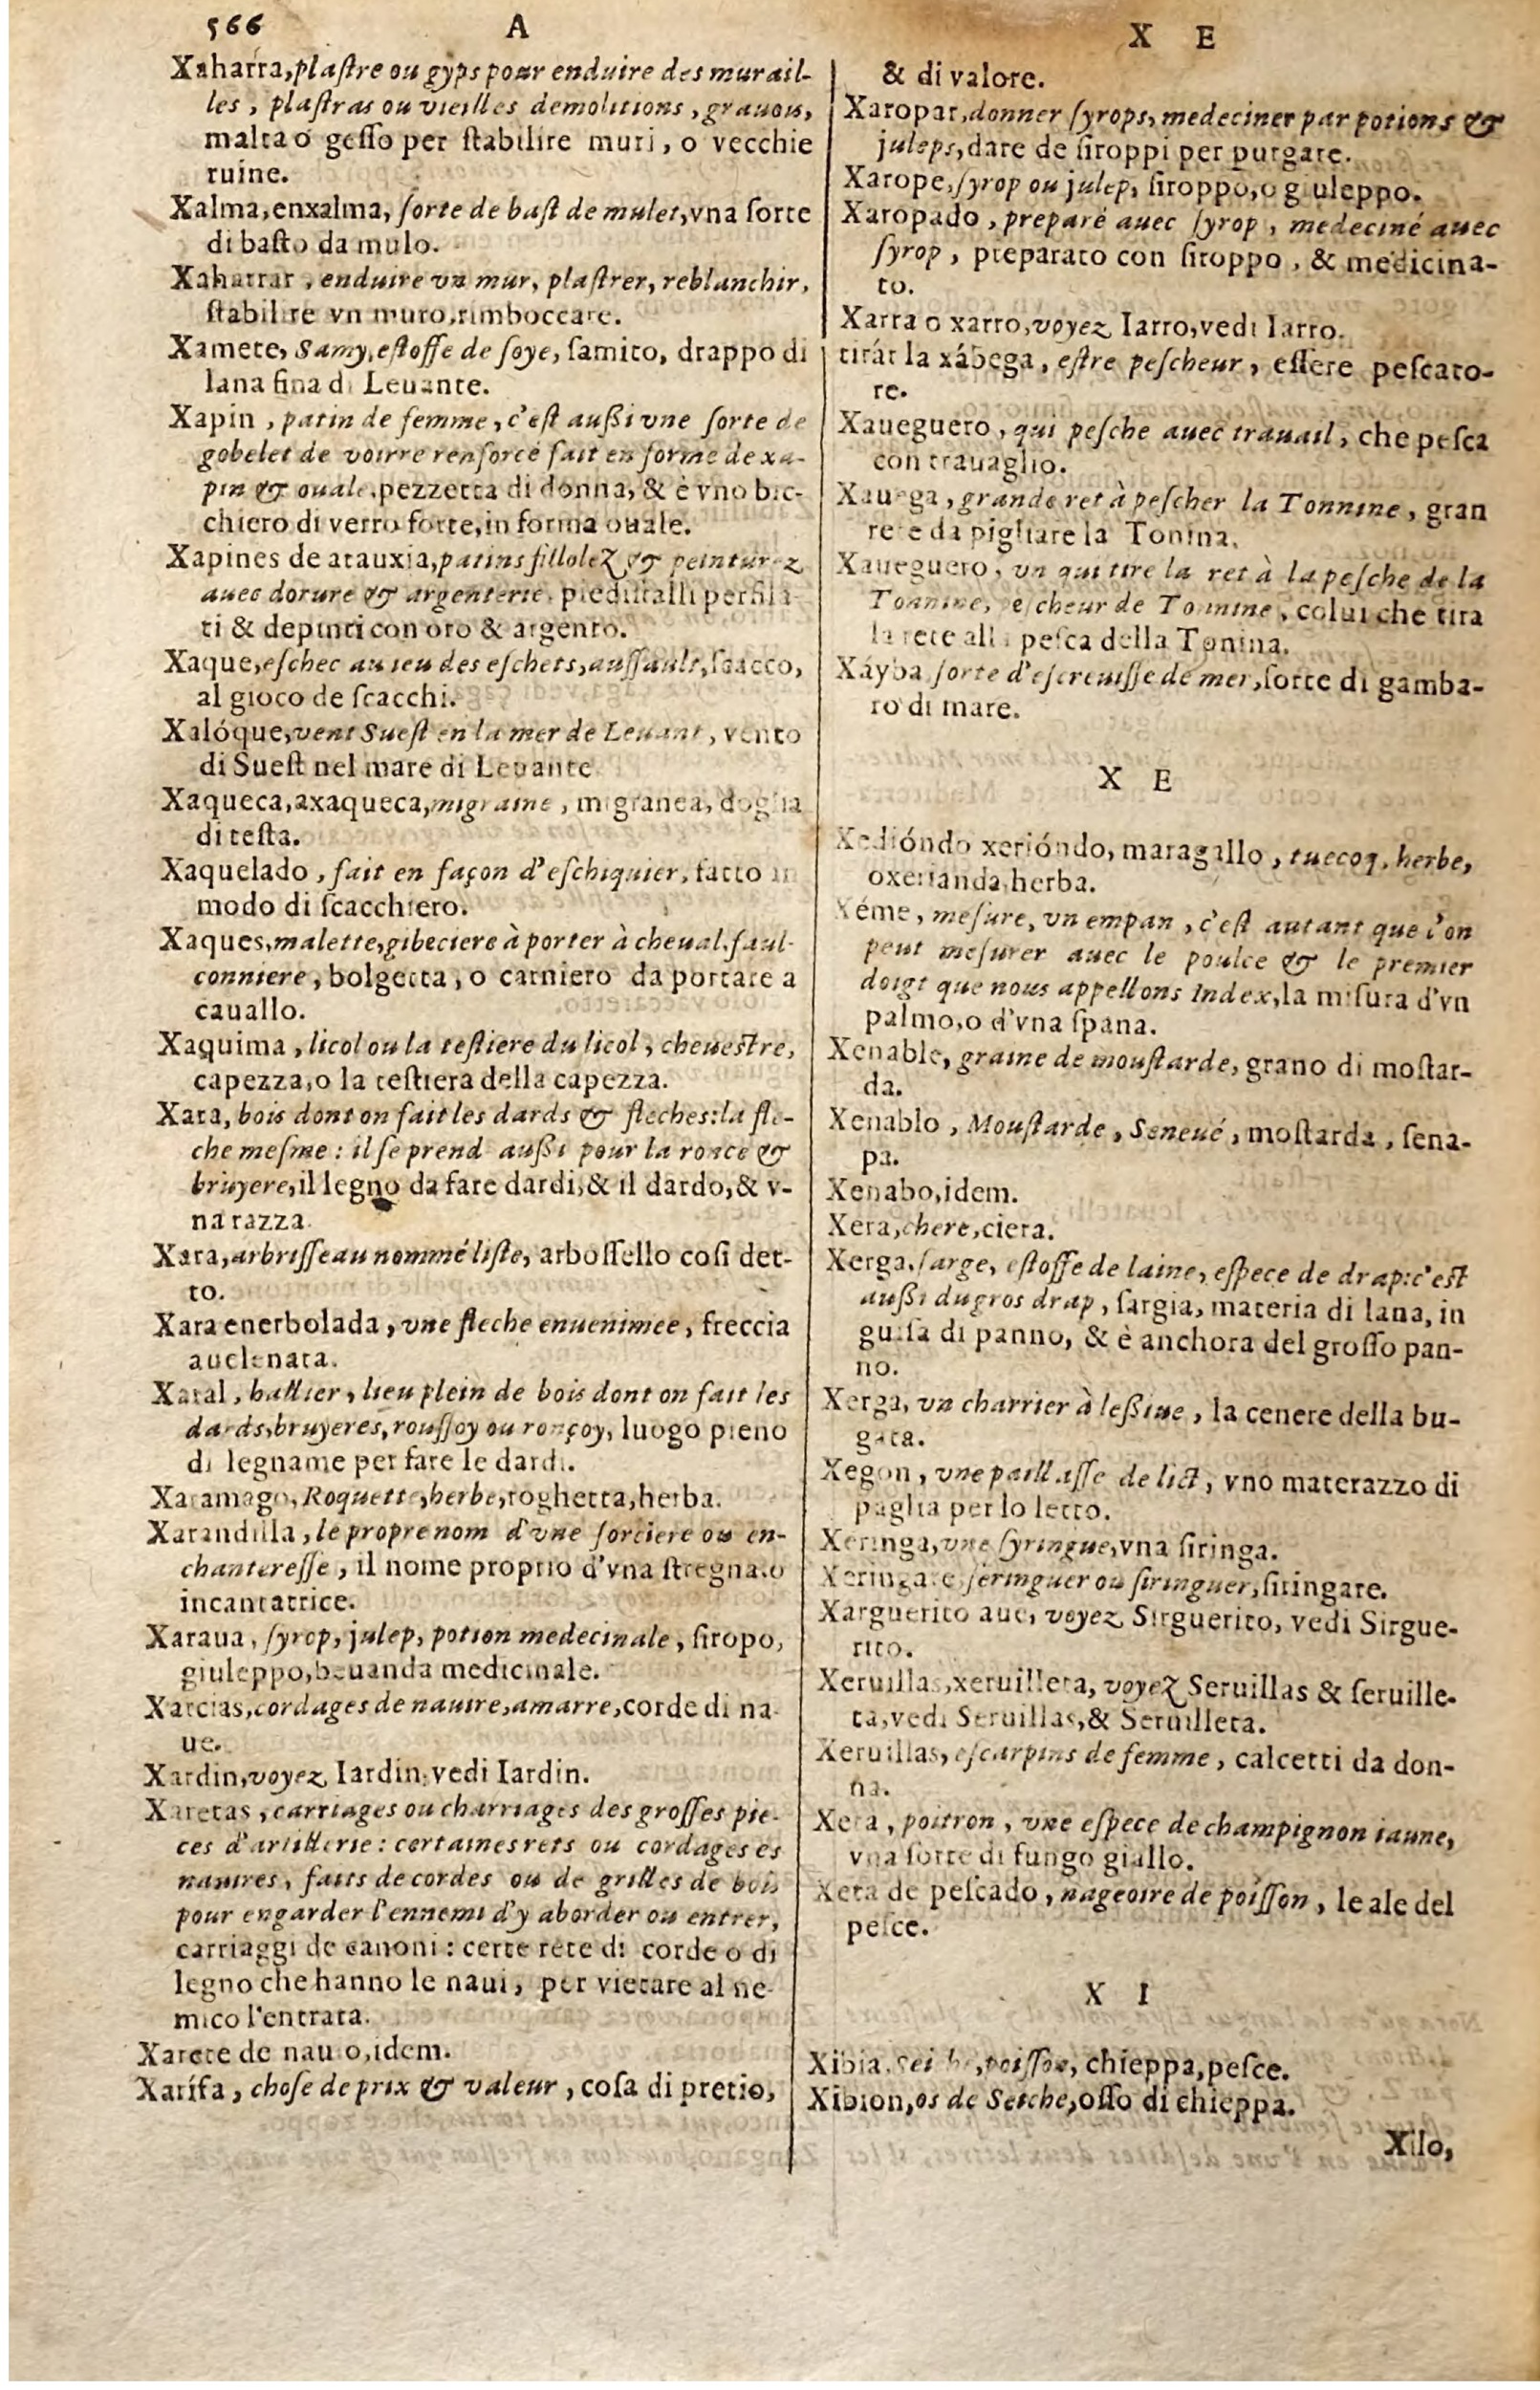 566 A
Xaharra, plaſtre ou gyps pour enduire des murail-
les, plaſtras ou vieilles demolitions, grauois,
malta o geſſo per ſtabilire muri, o vecchie
ruine.
Xalma, enxalma, ſorte de baſt de mulet, vna ſorte
di baſto da mulo.
Xaharrar, enduire vn mur, plaſtrer, reblanchir,
ſtabilire vn muro, rimboccare.
Xamete, Samy, eſtoffe de ſoye, ſamito, drappo di
lana fina di Leuante.
Xapin, patin de femme, c'eſt außi vne ſorte de
gobelet de voirre renforcé fait en forme de xa-
pin & ouale, pezzetta di donna, & è vno bic-
chiero di verro forte, in forma ouale.
Xapines de atauxia, patins fillolez & peinturez
auec dorure & argenterie, piedistalli perfila-
ti & depinti con oro & argento.
Xaque, eſchec au ieu des eſchets, auſſault, ſcacco,
al gioco de ſcacchi.
Xalóque, vent Sueſt en la mer de Leuant, vento
di Sueſt nel mare di Leuante
Xaqueca, axaqueca, migraine, migranea, doglia
di teſta.
Xaquelado, fait en façon d'eſchiquier, fatto in
modo di ſcacchiero.
Xaques, malette, gibeciere à porter à cheual, faul-
conniere, bolgetta, o carniero da portare a
cauallo.
Xaquima, licol ou la teſtiere du licol, cheueſtre,
capezza, o la teſtiera della capezza.
Xara, bois dont on fait les dards & fleches: la fle-
che meſme: il ſe prend außi pour la ronce &
bruyere, il legno da fare dardi, & il dardo, & v-
na razza.
Xara, arbriſſeau nommé liſte, arboſſello coſi det-
to.
Xara enerbolada, vne fleche enuenimee, freccia
auelenata.
Xaral, hallier, lieu plein de bois dont on fait les
dards, bruyeres, rouſſoy ou ronçoy, luogo pieno
di legname per fare le dardi.
Xaramago, Roquette, herbe, roghetta, herba.
Xarandilla, le propre nom d'vne ſorciere ou en-
chantereſſe, il nome proprio d'vna ſtregna, o
incantatrice.
Xaraua, ſyrop, julep, potion medecinale, ſiropo,
giuleppo, beuanda medicinale.
Xarcias, cordages de nauire, amarre, corde di na-
ue.
Xardin, voyez Iardin, vedi Iardin.
Xaretas, carriages ou charriages des groſſes pie-
ces d'artillerie: certaines rets ou cordages es
nauires, faits de cordes ou de grilles de bois
pour engarder l'ennemi d'y aborder ou entrer,
carriaggi de canoni: certe rete di corde o di
legno che hanno le naui, per vietare al ne-
mico l'entrata.
Xarete de nauio, idem.
Xarífa, choſe de prix & valeur, coſa di pretio,
X E
& di valore.
Xaropar, donner ſyrops, medeciner par potions &
juleps, dare de ſiroppi per purgare.
Xarope, ſyrop ou julep, ſiroppo, o giuleppo.
Xaropado, preparé auec ſyrop, medeciné auec
ſyrop, preparato con ſiroppo, & medicina-
to.
Xarra o xarro, voyez Iarro, vedi Iarro.
tirár la xábega, eſtre peſcheur, eſſere peſcato-
re.
Xaueguero, qui peſche auec trauail, che peſca
con trauaglio.
Xauega, grande ret à peſcher la Tonnine, gran
rete da pigliare la Tonina.
Xaueguero, vn qui tire la ret à la peſche de la
Tonnine, peſcheur de Tonnine, colui che tira
la rete alla peſca della Tonina.
Xáyba ſorte d'eſcreuiſſe de mer, ſorte di gamba-
ro di mare.
X E
Xedióndo xerióndo, maragallo, tuecoq, herbe,
oxerianda, herba.
Xéme, meſure, vn empan, c'eſt autant que l'on
peut meſurer auec le poulce & le premier
doigt que nous appellons Index, la miſura d'vn
palmo, o d'vna ſpana.
Xenable, graine de mouſtarde, grano di moſtar-
da.
Xenablo, Mouſtarde, Seneué, moſtarda, ſena-
pa.
Xenabo, idem.
Xera, chere, ciera.
Xerga, ſarge, eſtoffe de laine, eſpece de drap: c'eſt
außi du gros drap, ſargia, materia di lana, in
guiſa di panno, & è anchora del groſſo pan-
no.
Xerga, vn charrier à leßiue, la cenere della bu-
gata.
Xegon, vne paillaſſe de lict, vno materazzo di
paglia per lo letto.
Xeringa, vne ſyringue, vna ſiringa.
Xeringare, ſeringuer ou ſiringuer, ſiringare.
Xarguerito aue, voyez Sirguerito, vedi Sirgue-
rito.
Xeruillas, xeruilleta, voyez Seruillas & ſeruille-
ta, vedi Seruillas, & Seruilleta.
Xeruillas, eſcarpins de femme, calcetti da don-
na.
Xeta, poitron, vne eſpece de champignon iaune,
vna ſorte di fungo giallo.
Xeta de peſcado, nageoire de poiſſon, le ale del
peſce.
X I
Xibia, Seiche, poiſſon, chieppa, peſce.
Xibion, os de Seiche, oſſo di chieppa.
Xilo,